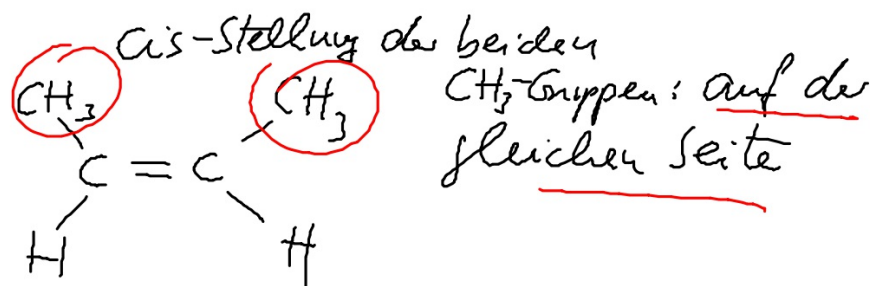 Cis-Stellung der beiden
CH3-Gruppen: auf der
gleichen Seite
CH3 CH3
C = C
H H